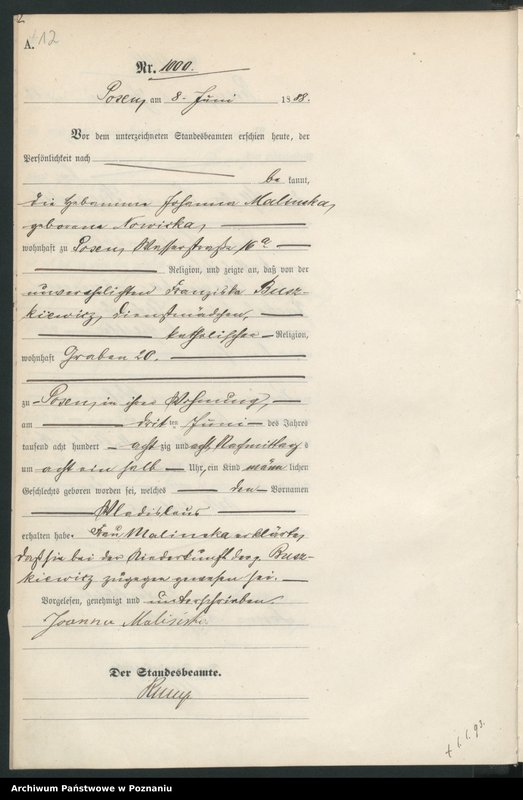 A.
12
Nr. 1000.
Posen, am 8. Juni 1888.
Vor dem unterzeichneten Standesbeamten erschien heute, der
Persönlichkeit nach
be kannt,
die Hebamme Johanna Malinska,
geborene Nowicka,
wohnhaft zu Posen, Wasserstraße 16a
Religion, und zeigte an, daß von der
unverehelichten Franziska Busz-
kiewicz, Dienstmädchen,
katholischer Religion,
wohnhaft Graben 20.
zu Posen, in ihrer Wohnung,
am dritten Juni des Jahres
tausend acht hundert achtzig und acht, Nachmittags
um acht ein halb Uhr, ein Kind männlichen
Geschlechts geboren worden sei, welches den Vornamen
Wladislaus
erhalten habe. Frau Malinska erklärte,
daß sie bei der Niederkunft der p. Busz-
kiewicz zugegen gewesen sei.
Vorgelesen, genehmigt und unterschrieben.
Joanna Malińska
Der Standesbeamte.
+ 6. 6. 93.
Archiwum Państwowe w Poznaniu